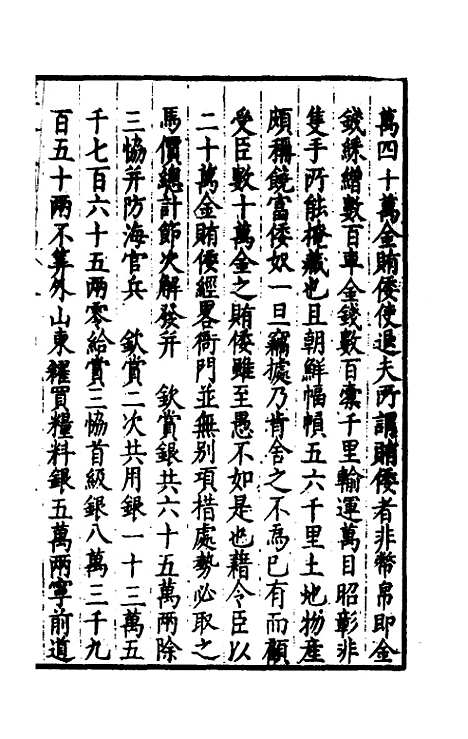 萬四十萬金賄倭使退夫所謂賄倭者非幣帛即金
錢綵繒數百車金錢數百橐千里輸運萬目昭彰非
隻手所能掩藏也且朝鮮幅幀五六千里土地物產
頗稱饒富倭奴一旦竊據乃肯舍之不為已有而顧
受臣數十萬金之賄倭雖至愚不如是也藉令臣以
二十萬金賄倭經畧衙門並無別項措處勢必取之
馬價總計節次解發并　欽賞銀共六十五萬兩除
三恊并防海官兵　欽賞二次共用銀一十三萬五
千七百六十五兩零給賞三恊首級銀八萬三千九
百五十兩不算外山東糴買糧料銀五萬兩寧前道